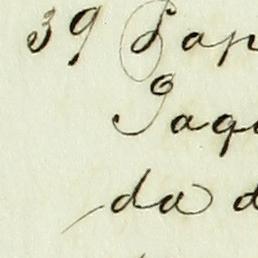 39 Pap
Jaqu
da d